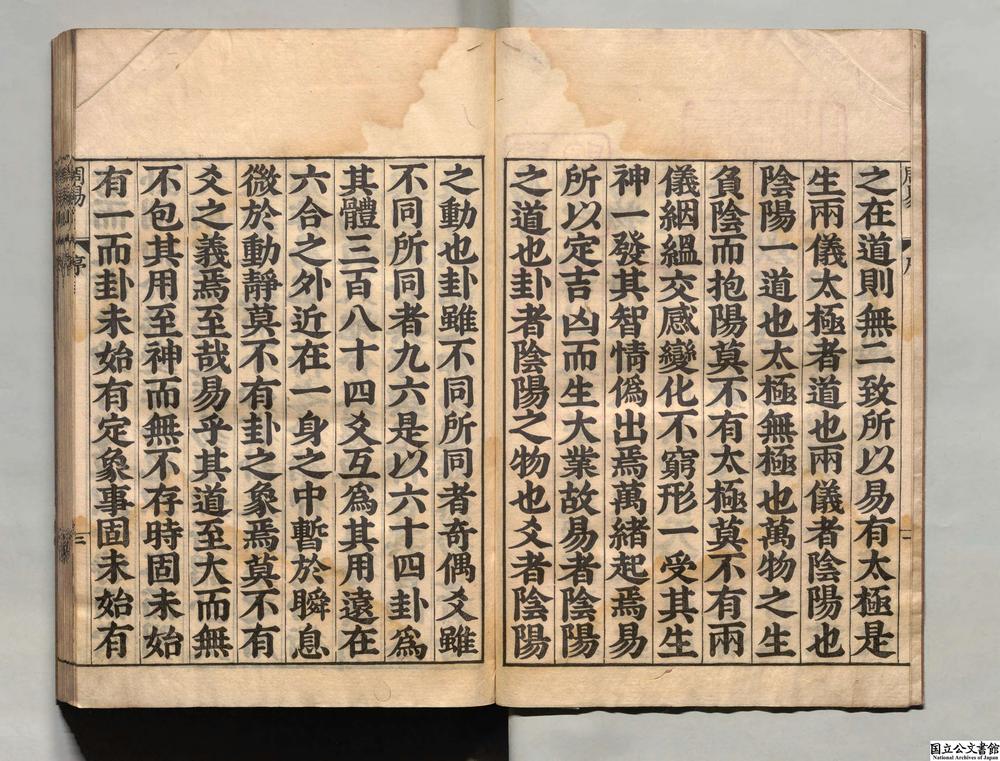 之在道則無二致所以易有太極是
生兩儀太極者道也兩儀者陰陽也
陰陽一道也太極無極也萬物之生
負陰而抱陽莫不有太極莫不有兩
儀絪縕交感變化不窮形一受其生
神一發其智情僞出焉萬緒起焉易
所以定吉凶而生大業故易者陰陽
之道也卦者陰陽之物也爻者陰陽
之動也卦雖不同所同者奇偶爻雖
不同所同者九六是以六十四卦爲
其體三百八十四爻互爲其用遠在
六合之外近在一身之中暫於瞬息
微於動靜莫不有卦之象焉莫不有
爻之義焉至哉易乎其道至大而無
不包其用至神而無不存時固未始
有一而卦未始有定象事固未始有
周易
序
三
国立公文書館
National Archives of Japan